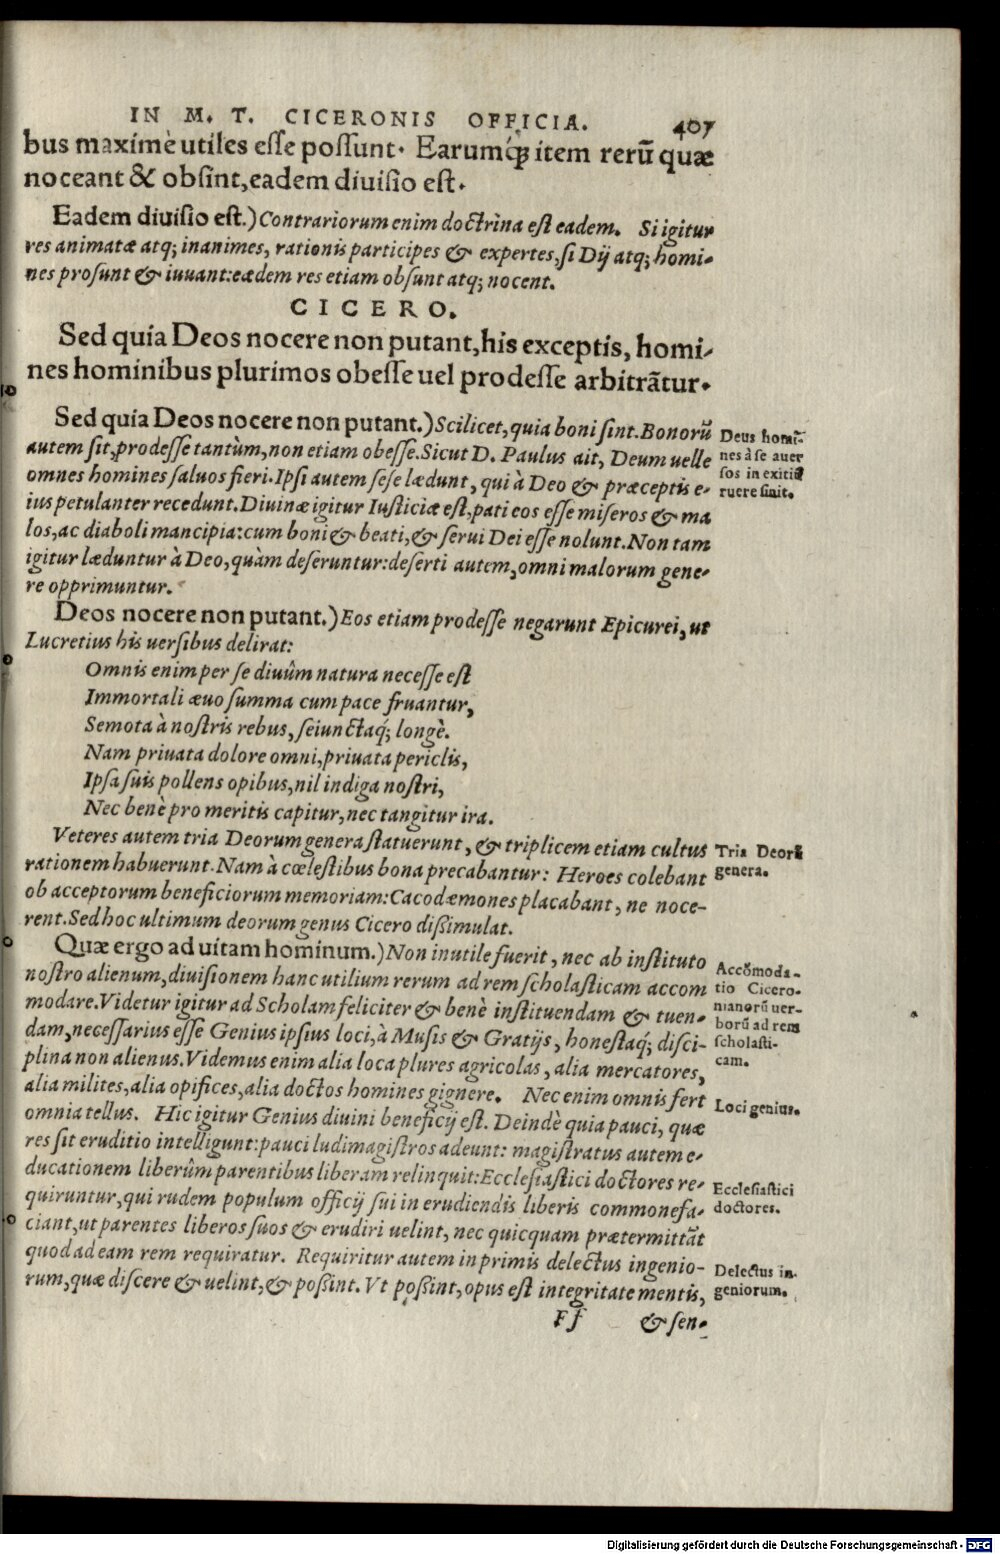 IN M. T. CICERONIS OFFICIA. 407
bus maximè utiles esse possunt. Earumq́; item rerũ quæ
noceant & obsint, eadem diuisio est.
Eadem diuisio est.) Contrariorum enim doctrina est eadem. Si igitur
res animatæ atq; inanimes, rationis participes & expertes, si Dij atq; homi-
nes prosunt & iuuant: eædem res etiam obsunt atq; nocent.
CICERO.
Sed quia Deos nocere non putant, his exceptis, homi-
nes hominibus plurimos obesse uel prodesse arbitrãtur.
Sed quia Deos nocere non putant.) Scilicet, quia boni sint. Bonorũ
autem sit, prodesse tantùm, non etiam obesse. Sicut D. Paulus ait, Deum uelle
omnes homines saluos fieri. Ipsi autem sese lædunt, qui à Deo & præceptis e-
ius petulanter recedunt. Diuinæ igitur Iusticiæ est, pati eos esse miseros & ma
los, ac diaboli mancipia: cum boni & beati, & serui Dei esse nolunt. Non tam
igitur læduntur à Deo, quàm deseruntur: deserti autem, omni malorum gene-
re opprimuntur.
Deus homi-
nes à se auer
sos in exitiũ
ruere sinit.
Deos nocere non putant.) Eos etiam prodesse negarunt Epicurei, ut
Lucretius his uersibus delirat:
Omnis enim per se diuûm natura necesse est
Immortali æuo summa cum pace fruantur,
Semota à nostris rebus, seiunctaq́; longè.
Nam priuata dolore omni, priuata periclis,
Ipsa suis pollens opibus, nil indiga nostri,
Nec benè pro meritis capitur, nec tangitur ira.
Veteres autem tria Deorum genera statuerunt, & triplicem etiam cultus
rationem habuerunt. Nam à cœlestibus bona precabantur: Heroes colebant
ob acceptorum beneficiorum memoriam: Cacodæmones placabant, ne noce-
rent. Sed hoc ultimum deorum genus Cicero dissimulat.
Tria Deorũ
genera.
Quæ ergo ad uitam hominum.) Non inutile fuerit, nec ab instituto
nostro alienum, diuisionem hanc utilium rerum ad rem scholasticam accom
modare. Videtur igitur ad Scholam feliciter & benè instituendam & tuen-
dam, necessarius esse Genius ipsius loci, à Musis & Gratijs, honestaq́; disci-
plina non alienus. Videmus enim alia loca plures agricolas, alia mercatores,
alia milites, alia opifices, alia doctos homines gignere. Nec enim omnis fert
omnia tellus. Hic igitur Genius diuini beneficij est. Deindè quia pauci, quæ
res sit eruditio intelligunt: pauci ludimagistros adeunt: magistratus autem e-
ducationem liberûm parentibus liberam relinquit: Ecclesiastici doctores re-
quiruntur, qui rudem populum officij sui in erudiendis liberis commonefa-
ciant, ut parentes liberos suos & erudiri uelint, nec quicquam prætermittãt
quod ad eam rem requiratur. Requiritur autem inprimis delectus ingenio-
rum, quæ discere & uelint, & possint. Vt possint, opus est integritate mentis,
Accõmoda-
tio Cicero-
nianorũ uer-
borũ ad rem
scholasti-
cam.
Loci genius.
Ecclesiastici
doctores.
Delectus in-
geniorum.
Ff & sen-
Digitalisierung gefördert durch die Deutsche Forschungsgemeinschaft - DFG